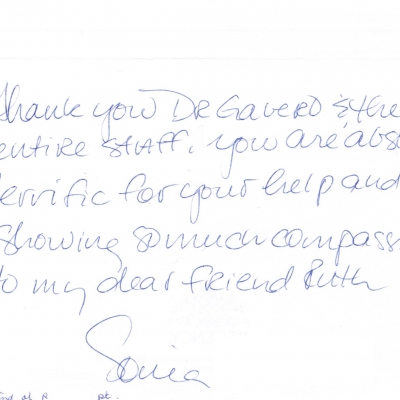 Thank you Dr Gavero & the
entire staff. You are abso
terrific for your help and
showing so much compass
to my dear friend Ruth
Sonia
pt.